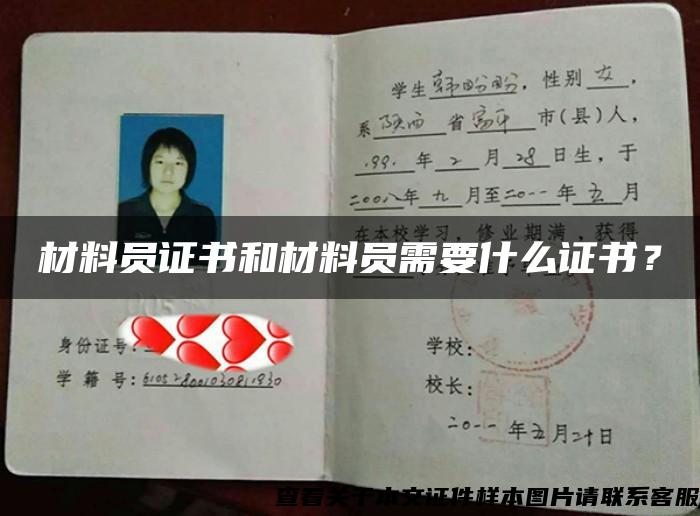 学生韩盼盼，性别女，
系陕西省富平市(县)人，
199.年2月28日生，于
二00八年九月至二0一一年五月
在本校学习，修业期满，获得
材料员证书和材料员需要什么证书？
身份证号：
学籍号：610528001030811930
学校：
校长：
二0一一年五月二十日
查看关于本文证件样本图片请联系客服